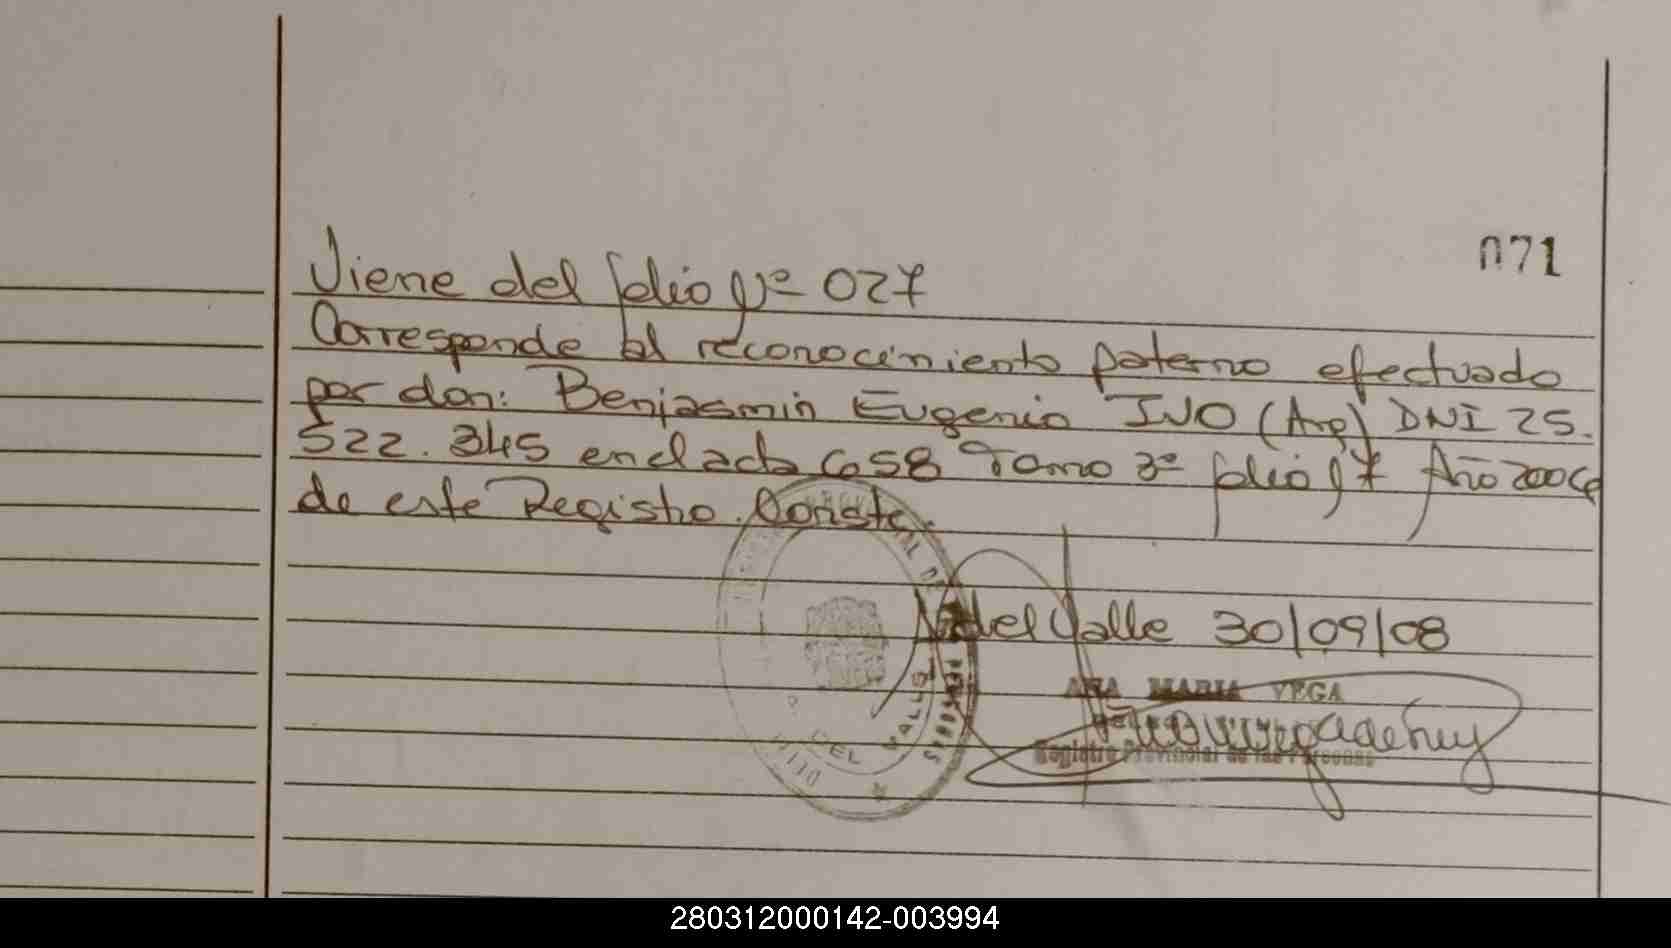 071
Viene del folio Nº 027
Corresponde al reconocimiento paterno efectuado
por don: Benjasmin Eugenio IVO (Arg) DNI 25.
522.345 en el acta 658 Tomo 3º folio 97 Año 2006
de este Registro. Conste.
del Valle 30/09/08
ANA MARIA VEGA
Registro Provincial de las Personas
DEL VALLE
280312000142-003994